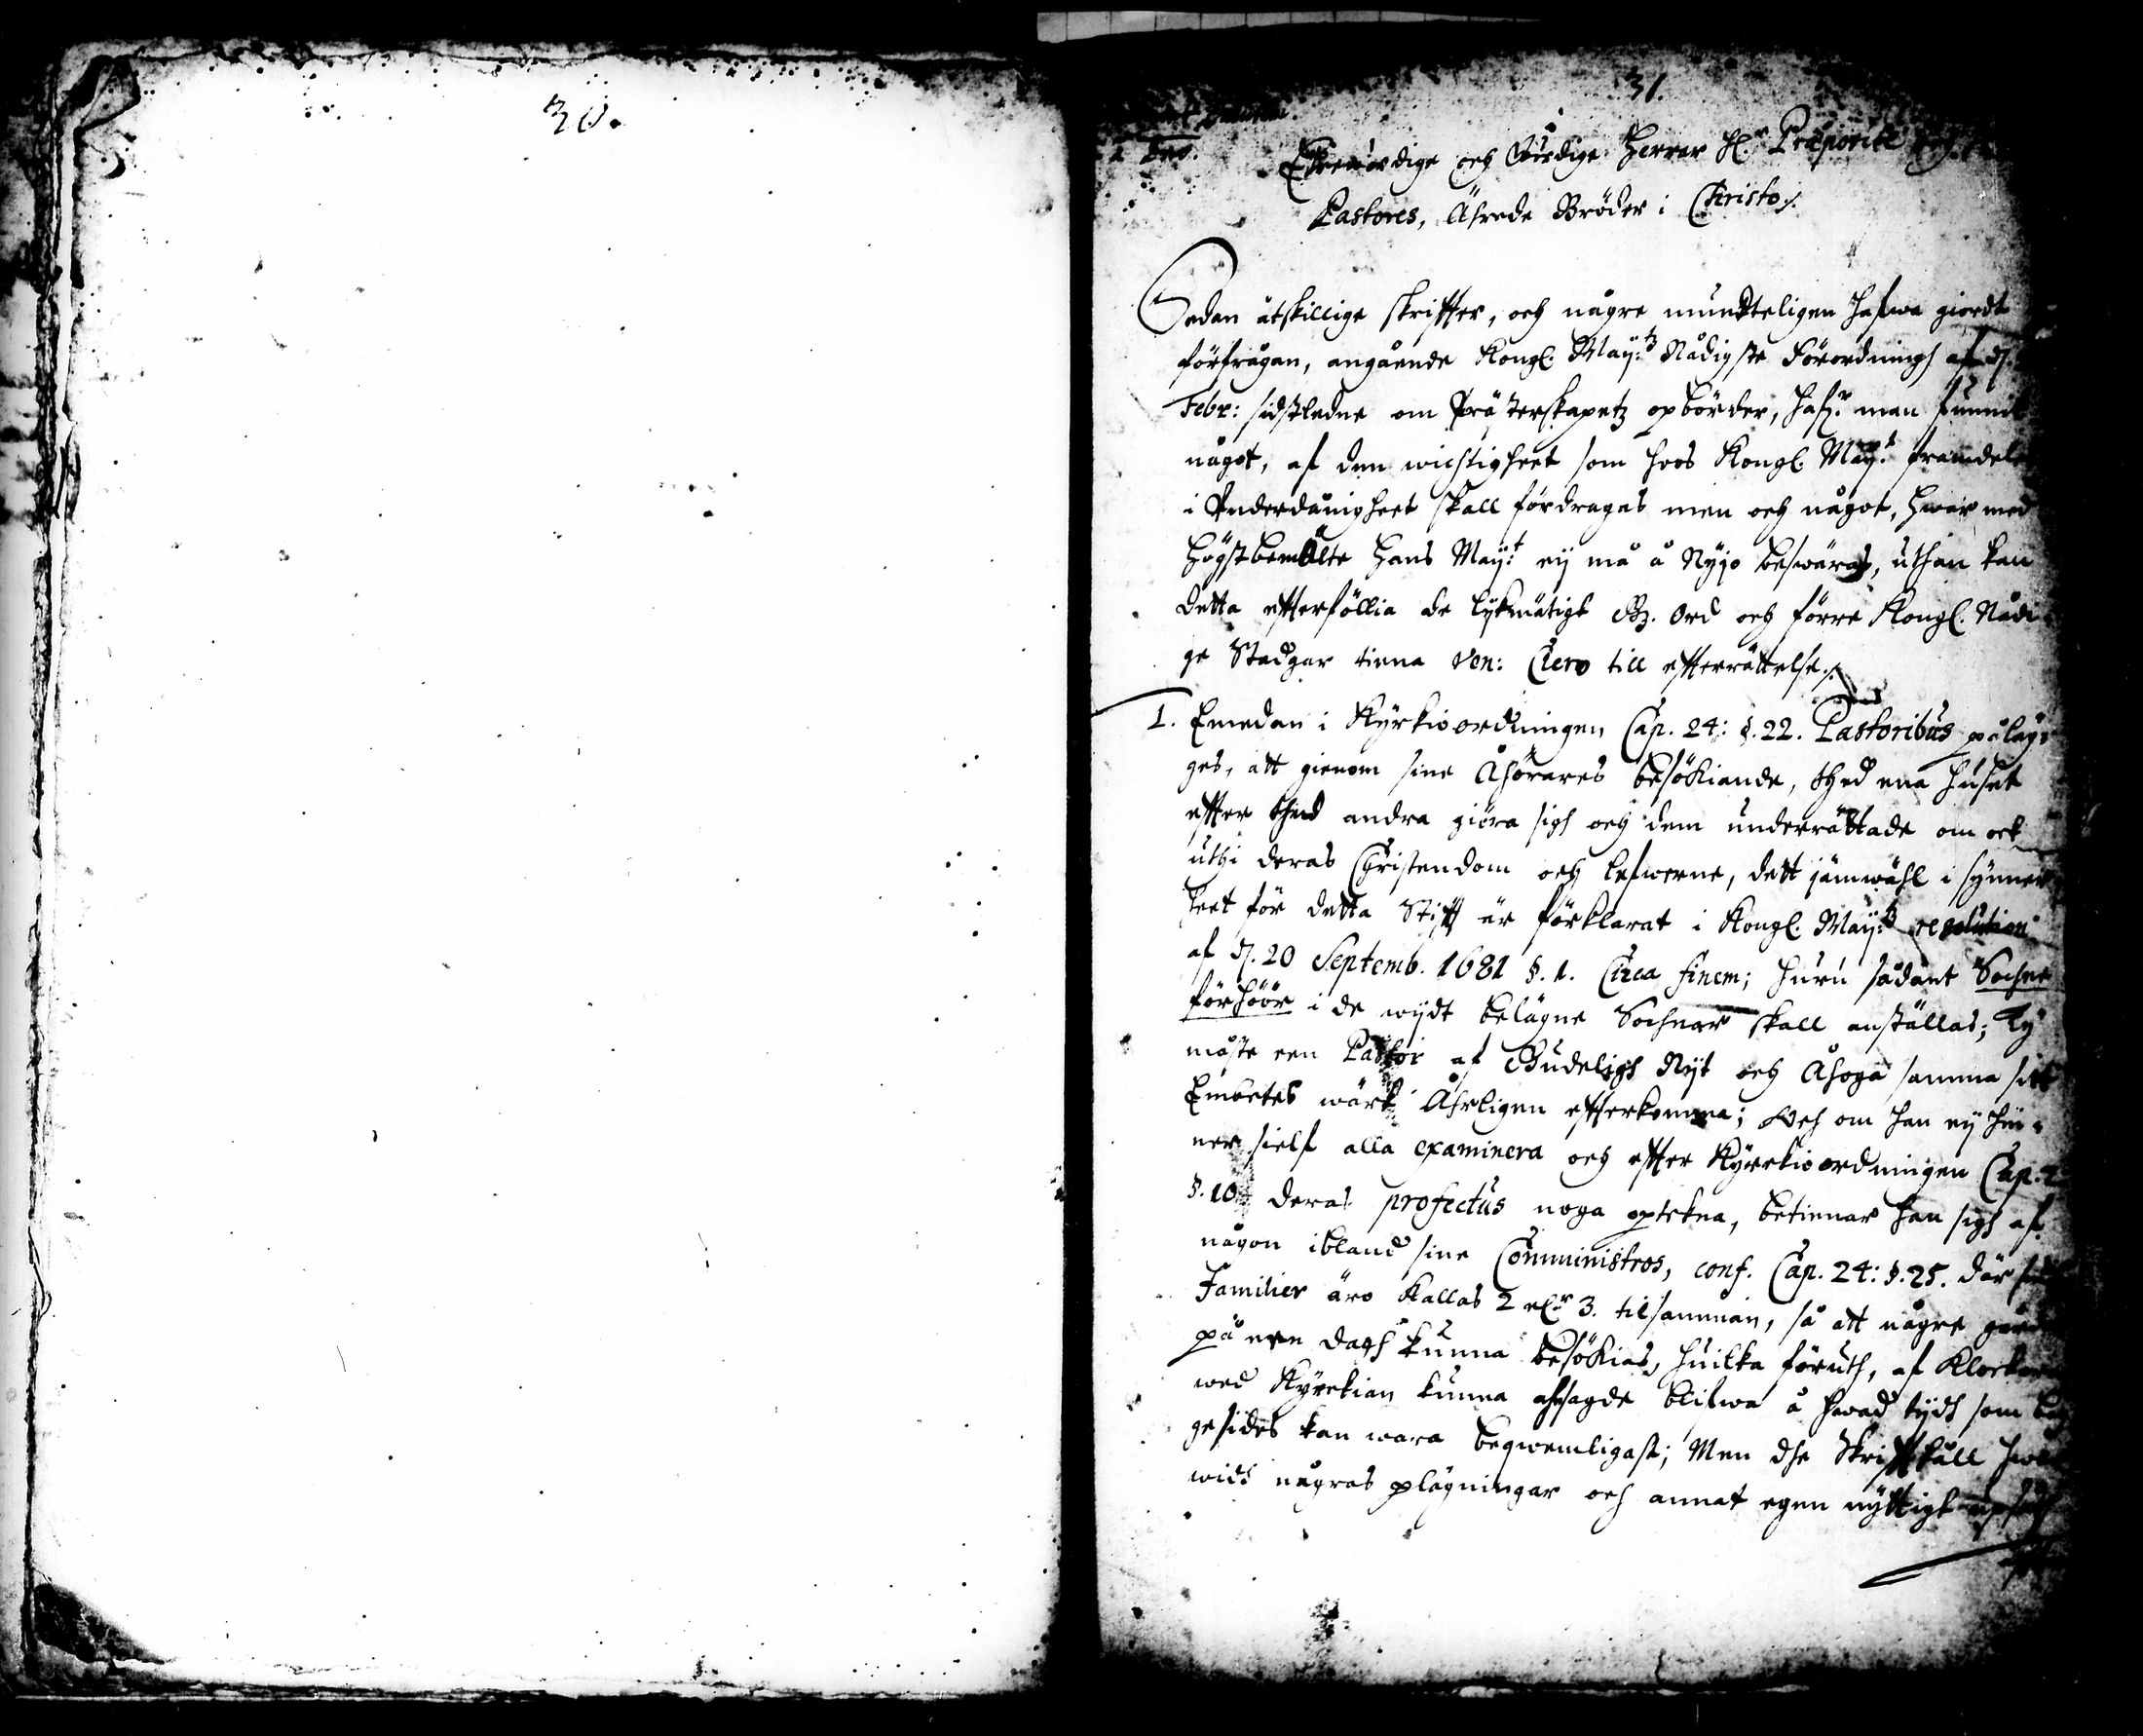 30.
31.
Ehrewördige och Wirdige Herrar H:r Præposite och
Pastores, Ährade Bröder i Christo /.
Sedan åtskillige skriffter, och någre mundteligen hafwa giordt
förfrågan, angående Kongl. May:tz Nådigste Förordningh af d.
Febr: sidstledne om Prästerskapetz opbörder, haf:r man funnit
något, af den wichtigheet som hoos Kongl. May:t framdeles
i Underdånigheet skall fördragas men och något, hwar med
högstbemälte Hans May:t eij må å Nyjo beswäras, uthan kan
detta efterföllia de lijkmätigt Gz. Ord och förre Kongl. Nådi-
ge Stadgar tiena Ven: Clero till efterrättelse /.
1. Emedan i Kyrkioordningen Cap. 24: §. 22. Pastoribus pålag-
ges, att gienom sine Åhörares besökiande, thed ena huset
efter thed andra giöra sigh och dem underrättade om ock
uthi deras Christendom och lefwerne, dett jämwähl i synner
heet för detta Stifft är förklarat i Kongl. May:tz resolution
af d. 20 Septemb. 1681 §. 1. Circa finem; huru sådant Sochne
förhöör i de wijdt belägne Sochnar skall anställas; Ty
måste een Pastor af Gudeligh Nijt och Åhoga samma sitt
Embetes wärk Åhrligen efterkomma; Och om han eij hin-
ner sielf alla examinera och efter Kyrckioordningen Cap. 2
§. 10 deras profectus noga optekna, betienar han sigh af
någon ibland sine Comministros, conf. Cap. 24: §. 25. där små
Familier äro kallas 2 el:r 3. tilsamman, så att någre gårdar
på een dagh kunna besökias, huilka föruth, af Klockaren
wed Kyrckian kunna afsagde blifwa å hwad tijdh som
gesides kan wara beqwemligast; Men dhe Skrifftkall hwar
widh någras plägningar och annat egen nyttigt